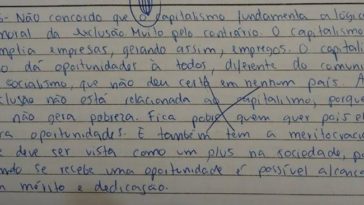 - Não concordo que o capitalismo fundamenta a lógica
moral da exclusão. Muito pelo contrário. O capitalismo
amplia empresas, gerando assim, empregos. O capitali
mo dá oportunidades à todos, diferente do comuni
socialismo, que não deu certo em nenhum país. A
clusão não está relacionada ao capitalismo, porqu
não gera pobreza. Fica pobre quem quer pois el
ra oportunidades. E também tem a meritocracia
e deve ser vista como um plus na sociedade, p
ndo se recebe uma oportunidade é possível alcanç
m mérito e dedicação.